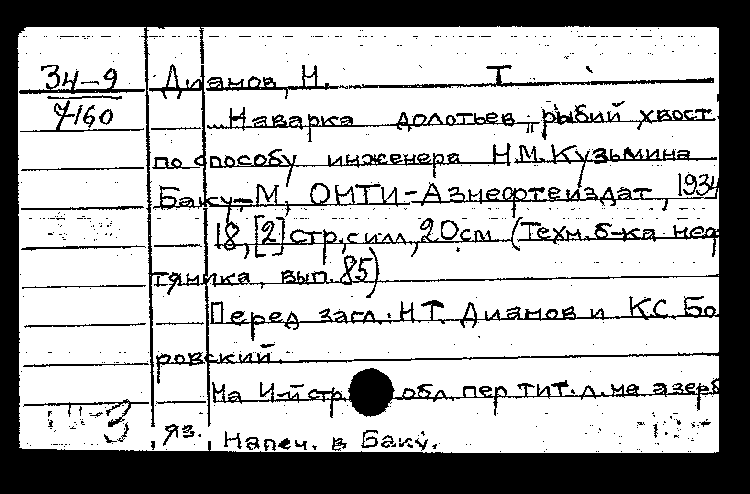 34-9 Дианов, Н. Т
7160
... Наварка долотьев „рыбий хвост"
по способу инженера Н.М. Кузьмина
Баку-М, ОНТИ-Азнефтеиздат, 1934
18, [2] стр. с илл., 20см (Техн. б-ка неф
тяника, вып. 85)
Перед загл.: Н.Т. Дианов и К.С. Бо
ровский.
На II-й стр обл. пер тит. л. на азерб
яз. Напеч. в Баку.